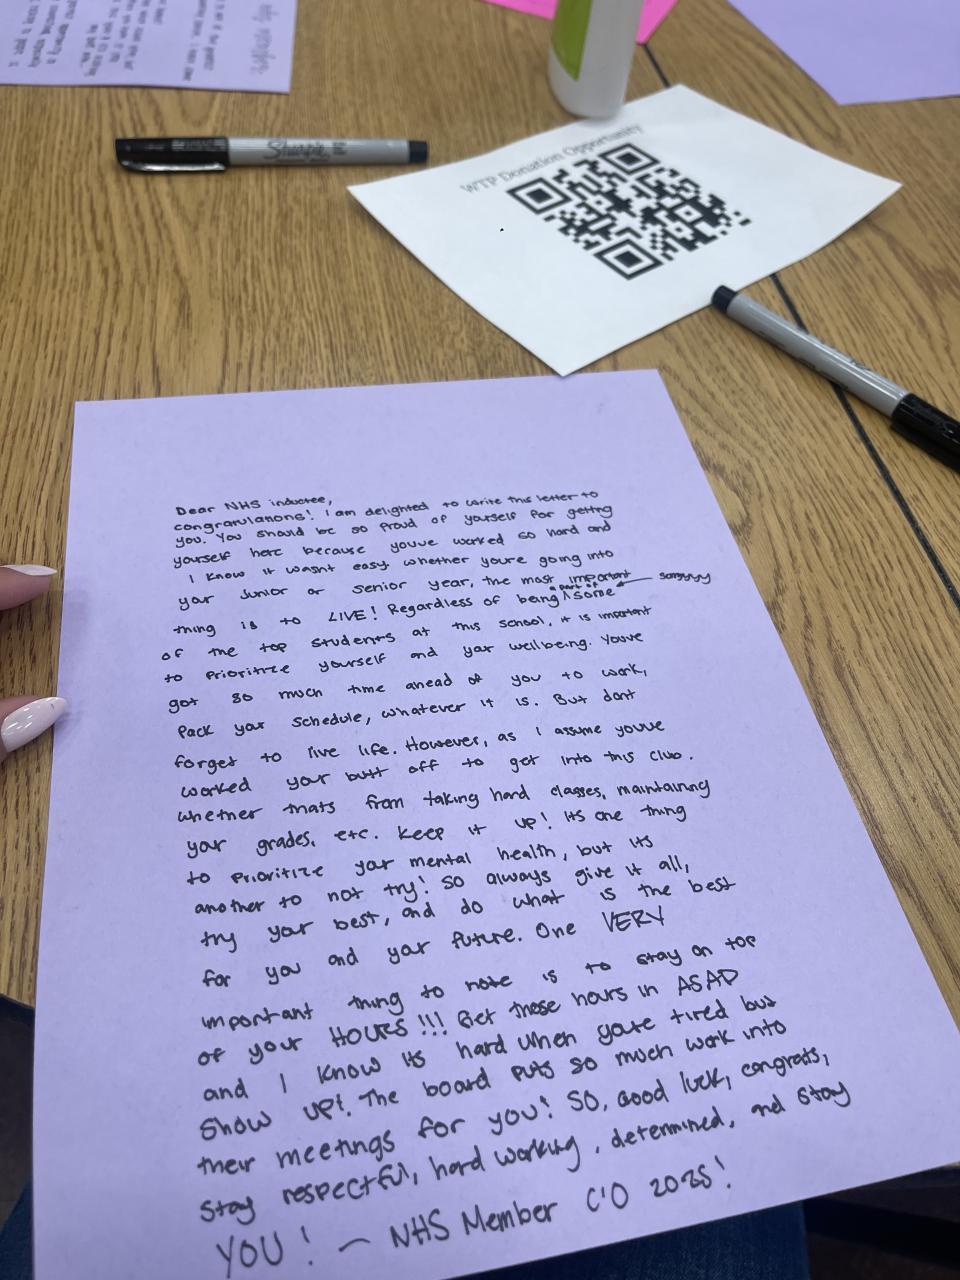 Sharpie
WTP Donation Opportunity
Dear NHS inductee,
congratulations! I am delighted to write this letter to
you. You should be so proud of yourself for getting
yourself here because youve worked so hard and
I know it wasnt easy. Whether youre going into
your Junior or senior year, the most important
thing is to LIVE! Regardless of being ^ a part of some ← sorryyyy
of the top students at this school, it is important
to prioritize yourself and your wellbeing. Youve
got so much time ahead of you to work,
pack your schedule, whatever it is. But dont
forget to live life. However, as I assume youve
worked your butt off to get into this club.
whether thats from taking hard classes, maintaining
your grades, etc. Keep it up! Its one thing
to prioritize your mental health, but its
another to not try! So always give it all,
try your best, and do what is the best
for you and your future. One VERY
important thing to note is to stay on top
of your HOURS!!! Get those hours in ASAP
and I know its hard when youre tired but
show up! The board puts so much work into
their meetings for you! So, Good luck, congrats,
stay respectful, hard working, determined, and stay
YOU! ~ NHS Member C'O 2025!